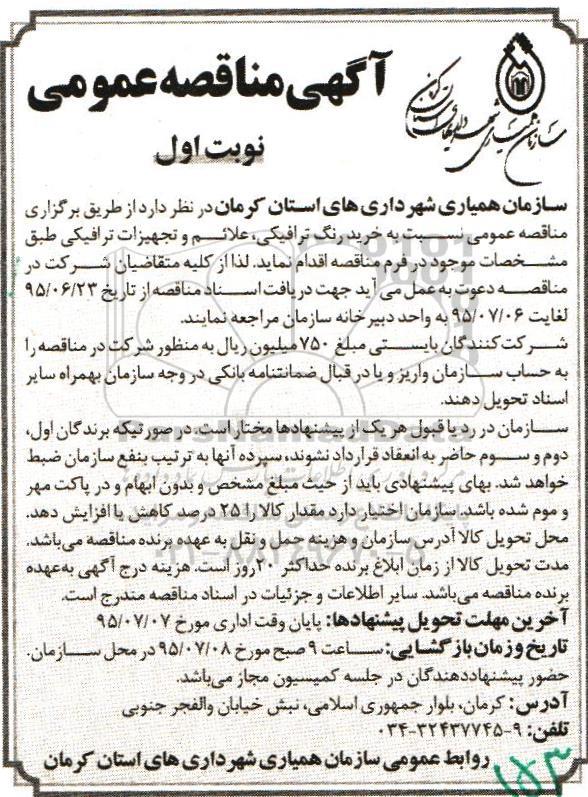 سازمان همیاری شهرداریهای استان کرمان
آگهی مناقصه عمومی
نوبت اول
سازمان همیاری شهرداری های استان کرمان در نظر دارد از طریق برگزاری
مناقصه عمومی نسبت به خرید رنگ ترافیکی، علائم و تجهیزات ترافیکی طبق
مشخصات موجود در فرم مناقصه اقدام نماید. لذا از کلیه متقاضیان شرکت در
مناقصه دعوت به عمل می آید جهت دریافت اسناد مناقصه از تاریخ ۹۵/۰۶/۲۳
لغایت ۹۵/۰۷/۰۶ به واحد دبیرخانه سازمان مراجعه نمایند.
شرکت کنندگان بایستی مبلغ ۷۵۰ میلیون ریال به منظور شرکت در مناقصه را
به حساب سازمان واریز و یا در قبال ضمانتنامه بانکی در وجه سازمان بهمراه سایر
اسناد تحویل دهند.
سازمان در رد یا قبول هر یک از پیشنهادها مختار است. در صورتیکه برندگان اول،
دوم و سوم حاضر به انعقاد قرارداد نشوند، سپرده آنها به ترتیب بنفع سازمان ضبط
خواهد شد. بهای پیشنهادی باید از حیث مبلغ مشخص و بدون ابهام و در پاکت مهر
و موم شده باشد. سازمان اختیار دارد مقدار کالا را ۲۵ درصد کاهش یا افزایش دهد.
محل تحویل کالا آدرس سازمان و هزینه حمل و نقل به عهده برنده مناقصه می‌باشد.
مدت تحویل کالا از زمان ابلاغ برنده حداکثر ۲۰ روز است. هزینه درج آگهی به‌عهده
برنده مناقصه می‌باشد. سایر اطلاعات و جزئیات در اسناد مناقصه مندرج است.
آخرین مهلت تحویل پیشنهادها: پایان وقت اداری مورخ ۹۵/۰۷/۰۷
تاریخ و زمان بازگشایی: ساعت ۹ صبح مورخ ۹۵/۰۷/۰۸ در محل سازمان.
حضور پیشنهاددهندگان در جلسه کمیسیون مجاز می‌باشد.
آدرس: کرمان، بلوار جمهوری اسلامی، نبش خیابان والفجر جنوبی
تلفن: ۹-۳۲۴۳۷۷۴۵-۰۳۴
روابط عمومی سازمان همیاری شهرداری های استان کرمان
ParsNamadData
۰۲۱-۸۸۳۴۹۶۷۰-۵